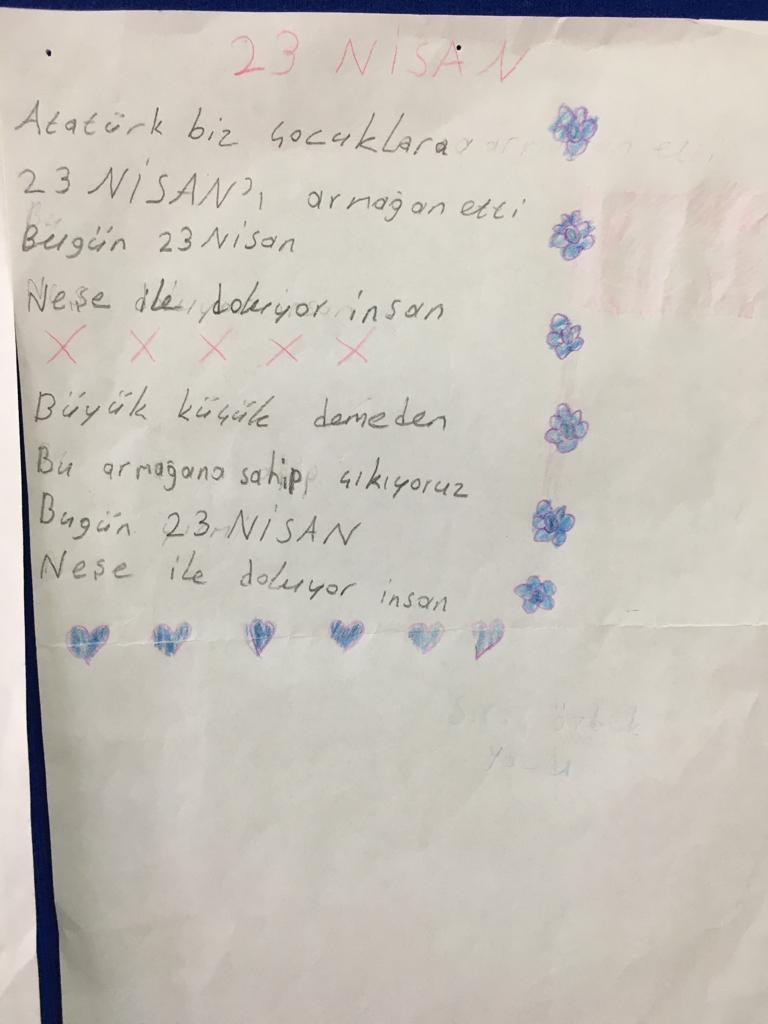 23 NİSAN
Atatürk biz çocuklara
23 NİSAN'ı armağan etti
Bugün 23 Nisan
Neşe ile doluyor insan
Büyük küçük demeden
Bu armağana sahip çıkıyoruz
Bugün 23 NİSAN
Neşe ile doluyor insan